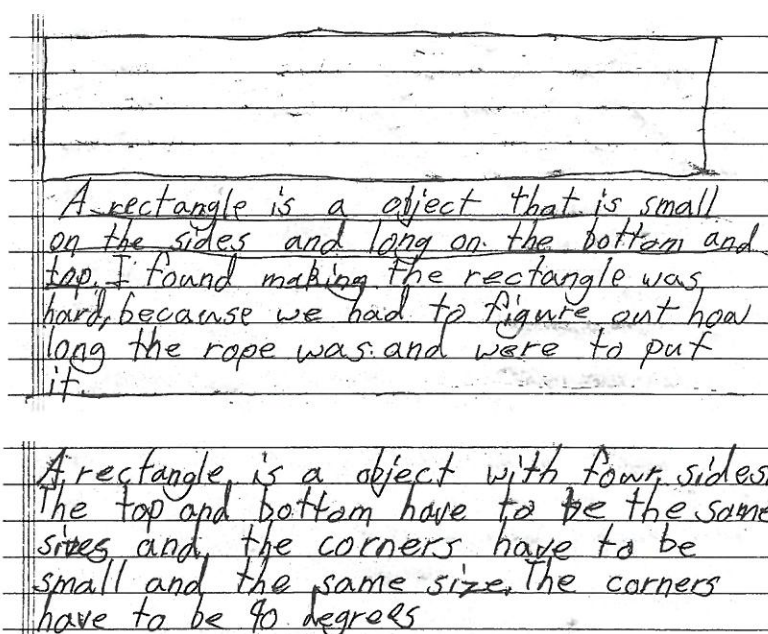 A rectangle is a object that is small
on the sides and long on the bottom and
top. I found making the rectangle was
hard, because we had to figure out how
long the rope was and were to put
it.
A rectangle is a object with four sides.
The top and bottom have to be the same
sizes and the corners have to be
small and the same size. The corners
have to be 90 degrees